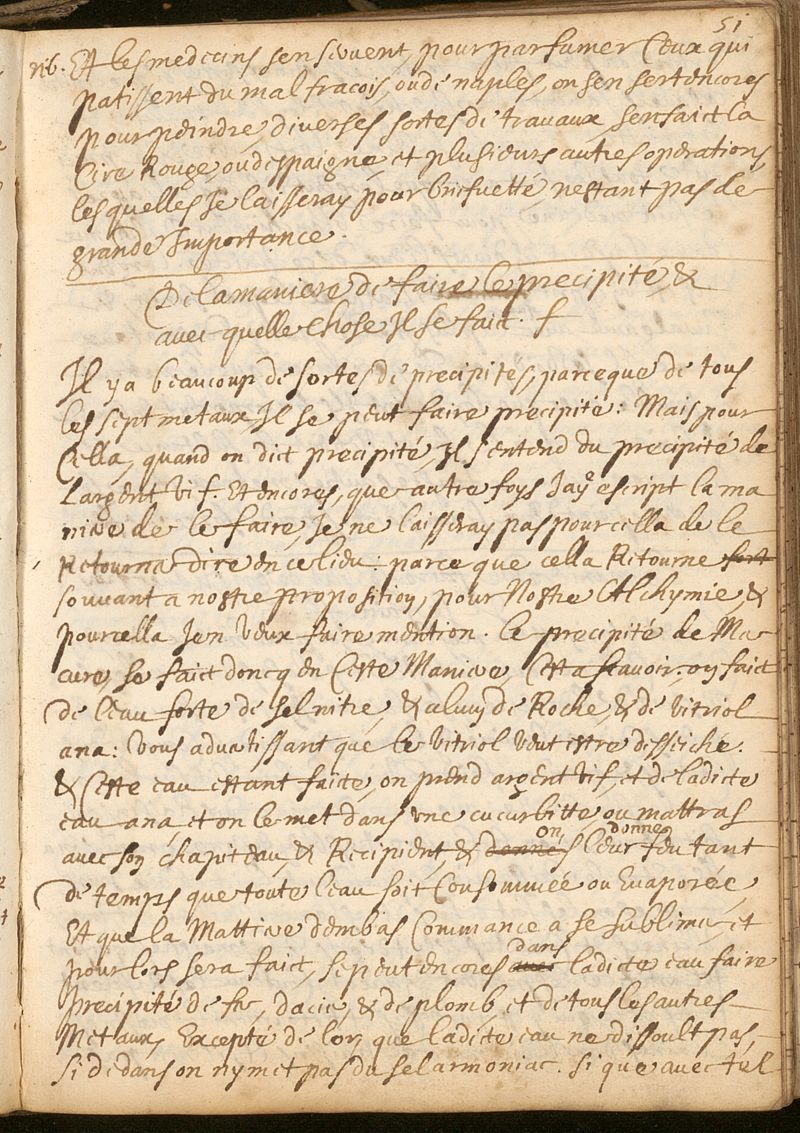 51
nb. Et les medecins sen servent pour parfumer Ceux qui
patissent du mal fracois, ou de naples, on sen sert encores
pour peindre, diverses sortes de travaux, sen faict la
Cire Rouge, ou despaigne, et plusieurs autres operations,
lesquelles Je laisseray pour briefuetté, nestant pas de
grande Importance.
De la maniere de faire le precipité, &
avec quelle chose Il se faict. f
Il y a beaucoup de sortes de precipités, parceque de tous
les sept metaux, Il se peut faire precipité: Mais pour
Cella, quand on dict precipité, Il s'entend du precipité de
L'argent vif. Et encores, que autre foys Jay escript la ma
niere de le faire, Je ne laisseray pas pour cella de le
Retourna dire en ce lieu: parce que cella Retourne fort
souvant a nostre proposition, pour Nostre Alchymie, &
pour cella Jen veux faire mention. Le precipité de Mer-
cure, se faict doncq en Ceste Maniere, Cest a scavoir, on faict
de l'eau forte de sel nitre, & alum de Roche, & de vitriol
ana: vous advertissant que le vitriol veut estre desseiché.
& Ceste eau estant faicte, on prend argent vif, et de ladicte
eau ana, et on le met dans une cucurbitte, ou mattras
avec son chapiteau, & Recipient, & donnés on leur donne feu tant
de temps que toute l'eau soit Consommée ou Evaporée,
Et que la Mattiere dembas Commance a se sublimer, et
pour lors sera faict, se peut encores avec dans ladicte eau faire
precipité de fer, dacier, & de plomb, et de tous les autres
Metaux, Excepté de lor, que ladicte eau ne dissoult pas,
si dedans on ny met pas du sel armoniac. si que avec tel